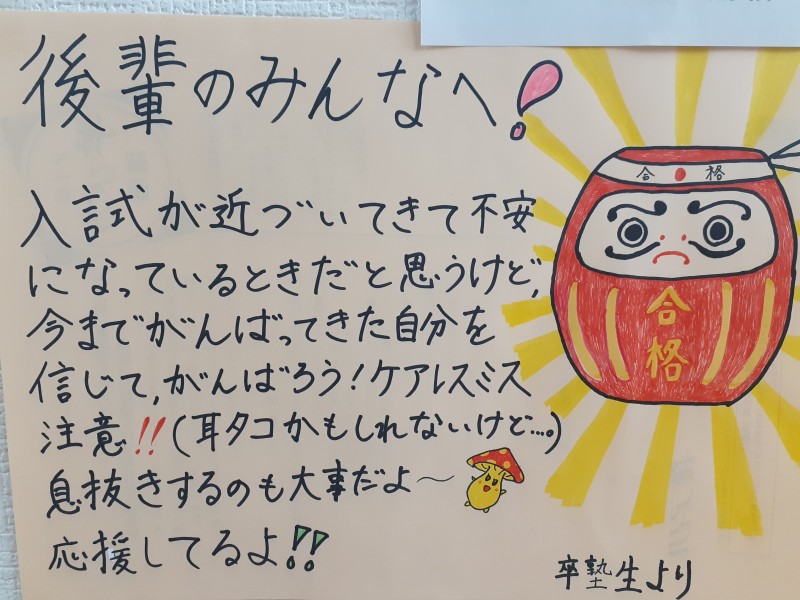 後輩のみんなへ!
入試式が近づいてきて不安
になっているときだと思うけど、
今までがんばってきた自分を
信じて、がんばろう!ケアレスミス
注意!!(耳タコかもしれないけど...。)
息抜きするのも大事だよ〜
応援してるよ!!
合格
合格
卒塾生より